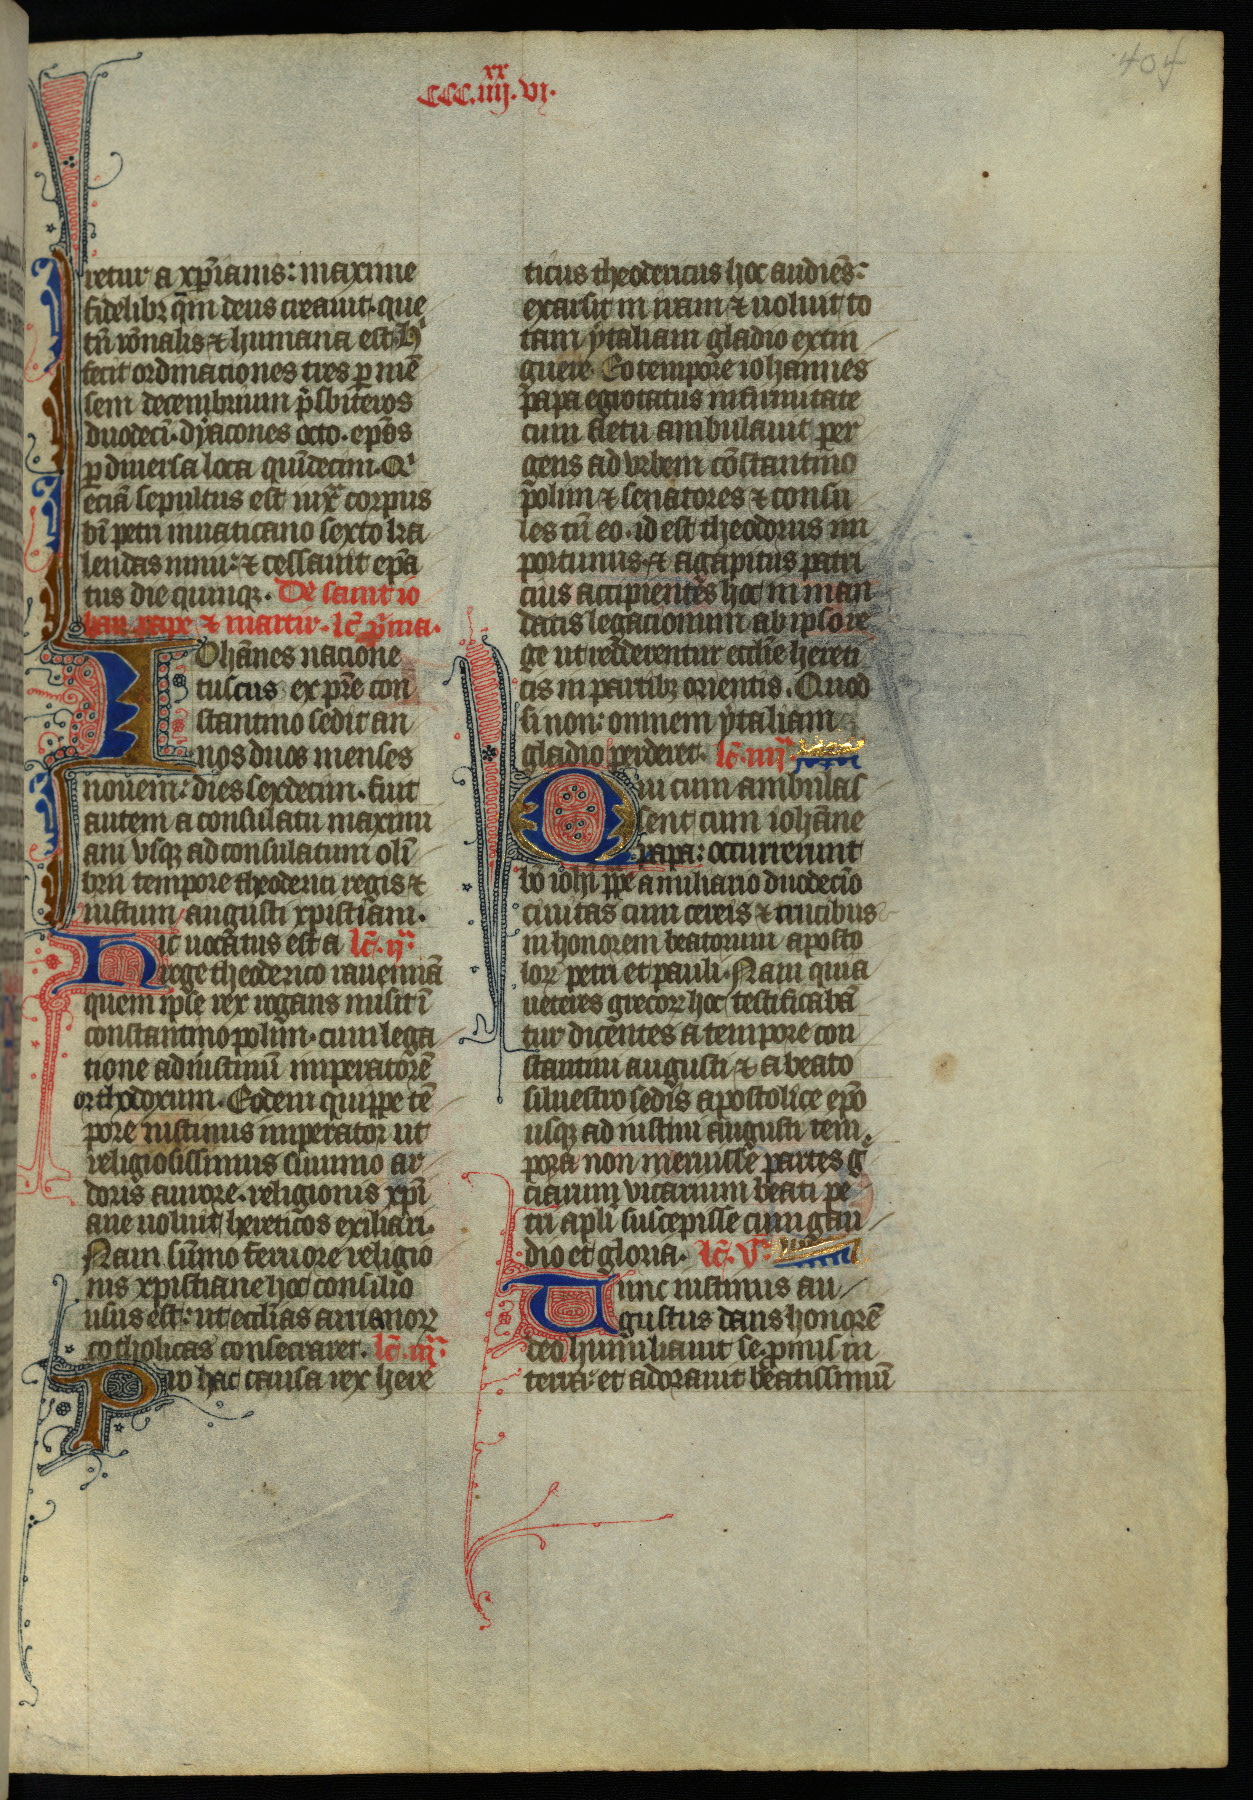 404
xx
CCC.iiij.vi.
retur a xp̄ianis: maxime
fidelibꝫ qm̄ deus creauit. que
tn̄ rōnalis ⁊ humana est. H'
fecit ordinaciones tres p mē
sem decembrium p̄sbiteros
duodecī. dyacones octo. ep̄os
p diuersa loca quīdecim. Q'
eciā sepultus est iux̄ corpus
bī petri in uaticano sexto ka
lendas iunii: ⁊ cessauit ep̄a
tus die quinqꝫ. De sanct io
han pape ⁊ martir. lc̄ p̄ma.
Iohānes nacione
tuscus ex pr̄e con
stantino sedit an
nos duos menses
nouem: dies sexdecim. fuit
autem a consulatu maximi
ani vsqꝫ ad consulatum oli
brii tempore theoderici regis ⁊
iustini augusti xp̄istiani.
Hic uocatus est a lc̄. ij.ᵃ
rege theoderico rauennā
quem ipse rex rogans misit ī
constantinopolim. cum lega
tione ad iustinū imperatorē
orthodoxum. Eodem quippe tē
pore iustinus imperator ut
religiosissimus summo ar
doris amore. religionis xp̄i
ane uoluit hereticos exiliari.
Nam sūmo feruore religio
nis xp̄istiane hoc consilio
usus est: ut ecclīas arrianoꝝ
catholicas consecraret. lc̄. iij.ᵃ
Pro hac causa rex here
ticus theodericus hoc audiēs:
exarsit in iram ⁊ uoluit to
tam ytaliam gladio extin
guere. Eo tempore iohannes
papa egrotatus infirmitate
cum fletu ambulauit per
gens ad vrbem cōstantino
polim ⁊ senatores ⁊ consu
les cū eo. id est theodorus in
portunus. ⁊ agapitus patri
cius accipientes hoc in man
datis legacionum ab ipso re
ge ut redderentur ecclīe hereti
cis in partibꝫ orientis. Quod
si non: omnem ytaliam
gladio perderet. lc̄. iiij.ᵃ
Qui cum ambulas
sent cum iohāne
papa: occurrerunt
bo iohi pp̄e a miliario duodecīo
ciuitas cum cereis ⁊ crucibus
in honorem beatorum aposto
loꝝ petri et pauli. Nam quia
ueteres grecoꝝ hoc testificabā
tur dicentes a tempore con
stantini augusti ⁊ a beato
siluestro sedis apostolice ep̄o
usqꝫ ad iustini augusti tem
pora non meruisse partes g
ciarum vicarium beati pe
tri apl̄i suscepisse cum gau
dio et gloria. lc̄. v.ᵃ
Tunc iustinus au
gustus dans honorē
deo humiliauit se pnus in
terra: et adorauit beatissimū